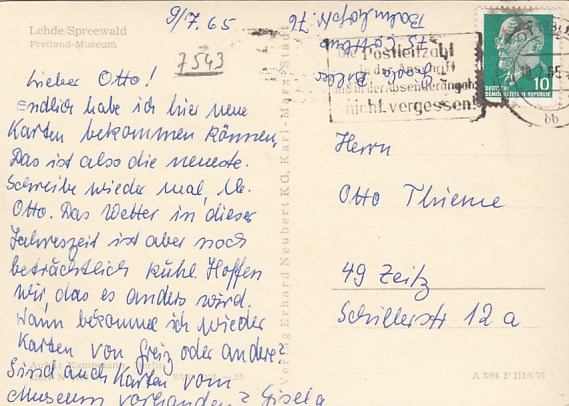 Lehde/Spreewald
Freiland-Museum
9/7.65
7543
Lieber Otto!
Endlich habe ich hier neue
Karten bekommen können.
Das ist also die neueste.
Schreibe wieder mal, lb.
Otto. Das Wetter in dieser
Jahreszeit ist aber noch
beträchtlich kühl. Hoffen
wir, das es anders wird.
Wann bekomme ich wieder
Karten von Greiz oder andere?
Sind auch Karten vom
Museum vorhanden? Gisela
Verlag Erhard Neubert KG, Karl-Marx-Stadt
Gisela
75 Cottbus
Bahnhofstr. 76
die Postleitzahl
in der Anschrift
und in der Absenderangabe
nicht vergessen!
DEUTSCHE
DEMOKRATISCHE REPUBLIK
10
bb
Herrn
Otto Thieme
49 Zeitz
Schillerstr 12a
A 3/64 F